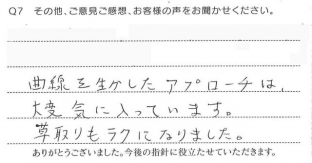 Q7 その他、ご意見ご感想、お客様の声をお聞かせください。
曲線を生かしたアプローチは、
大変気に入っています。
草取りもラクになりました。
ありがとうございました。今後の指針に役立たせていただきます。